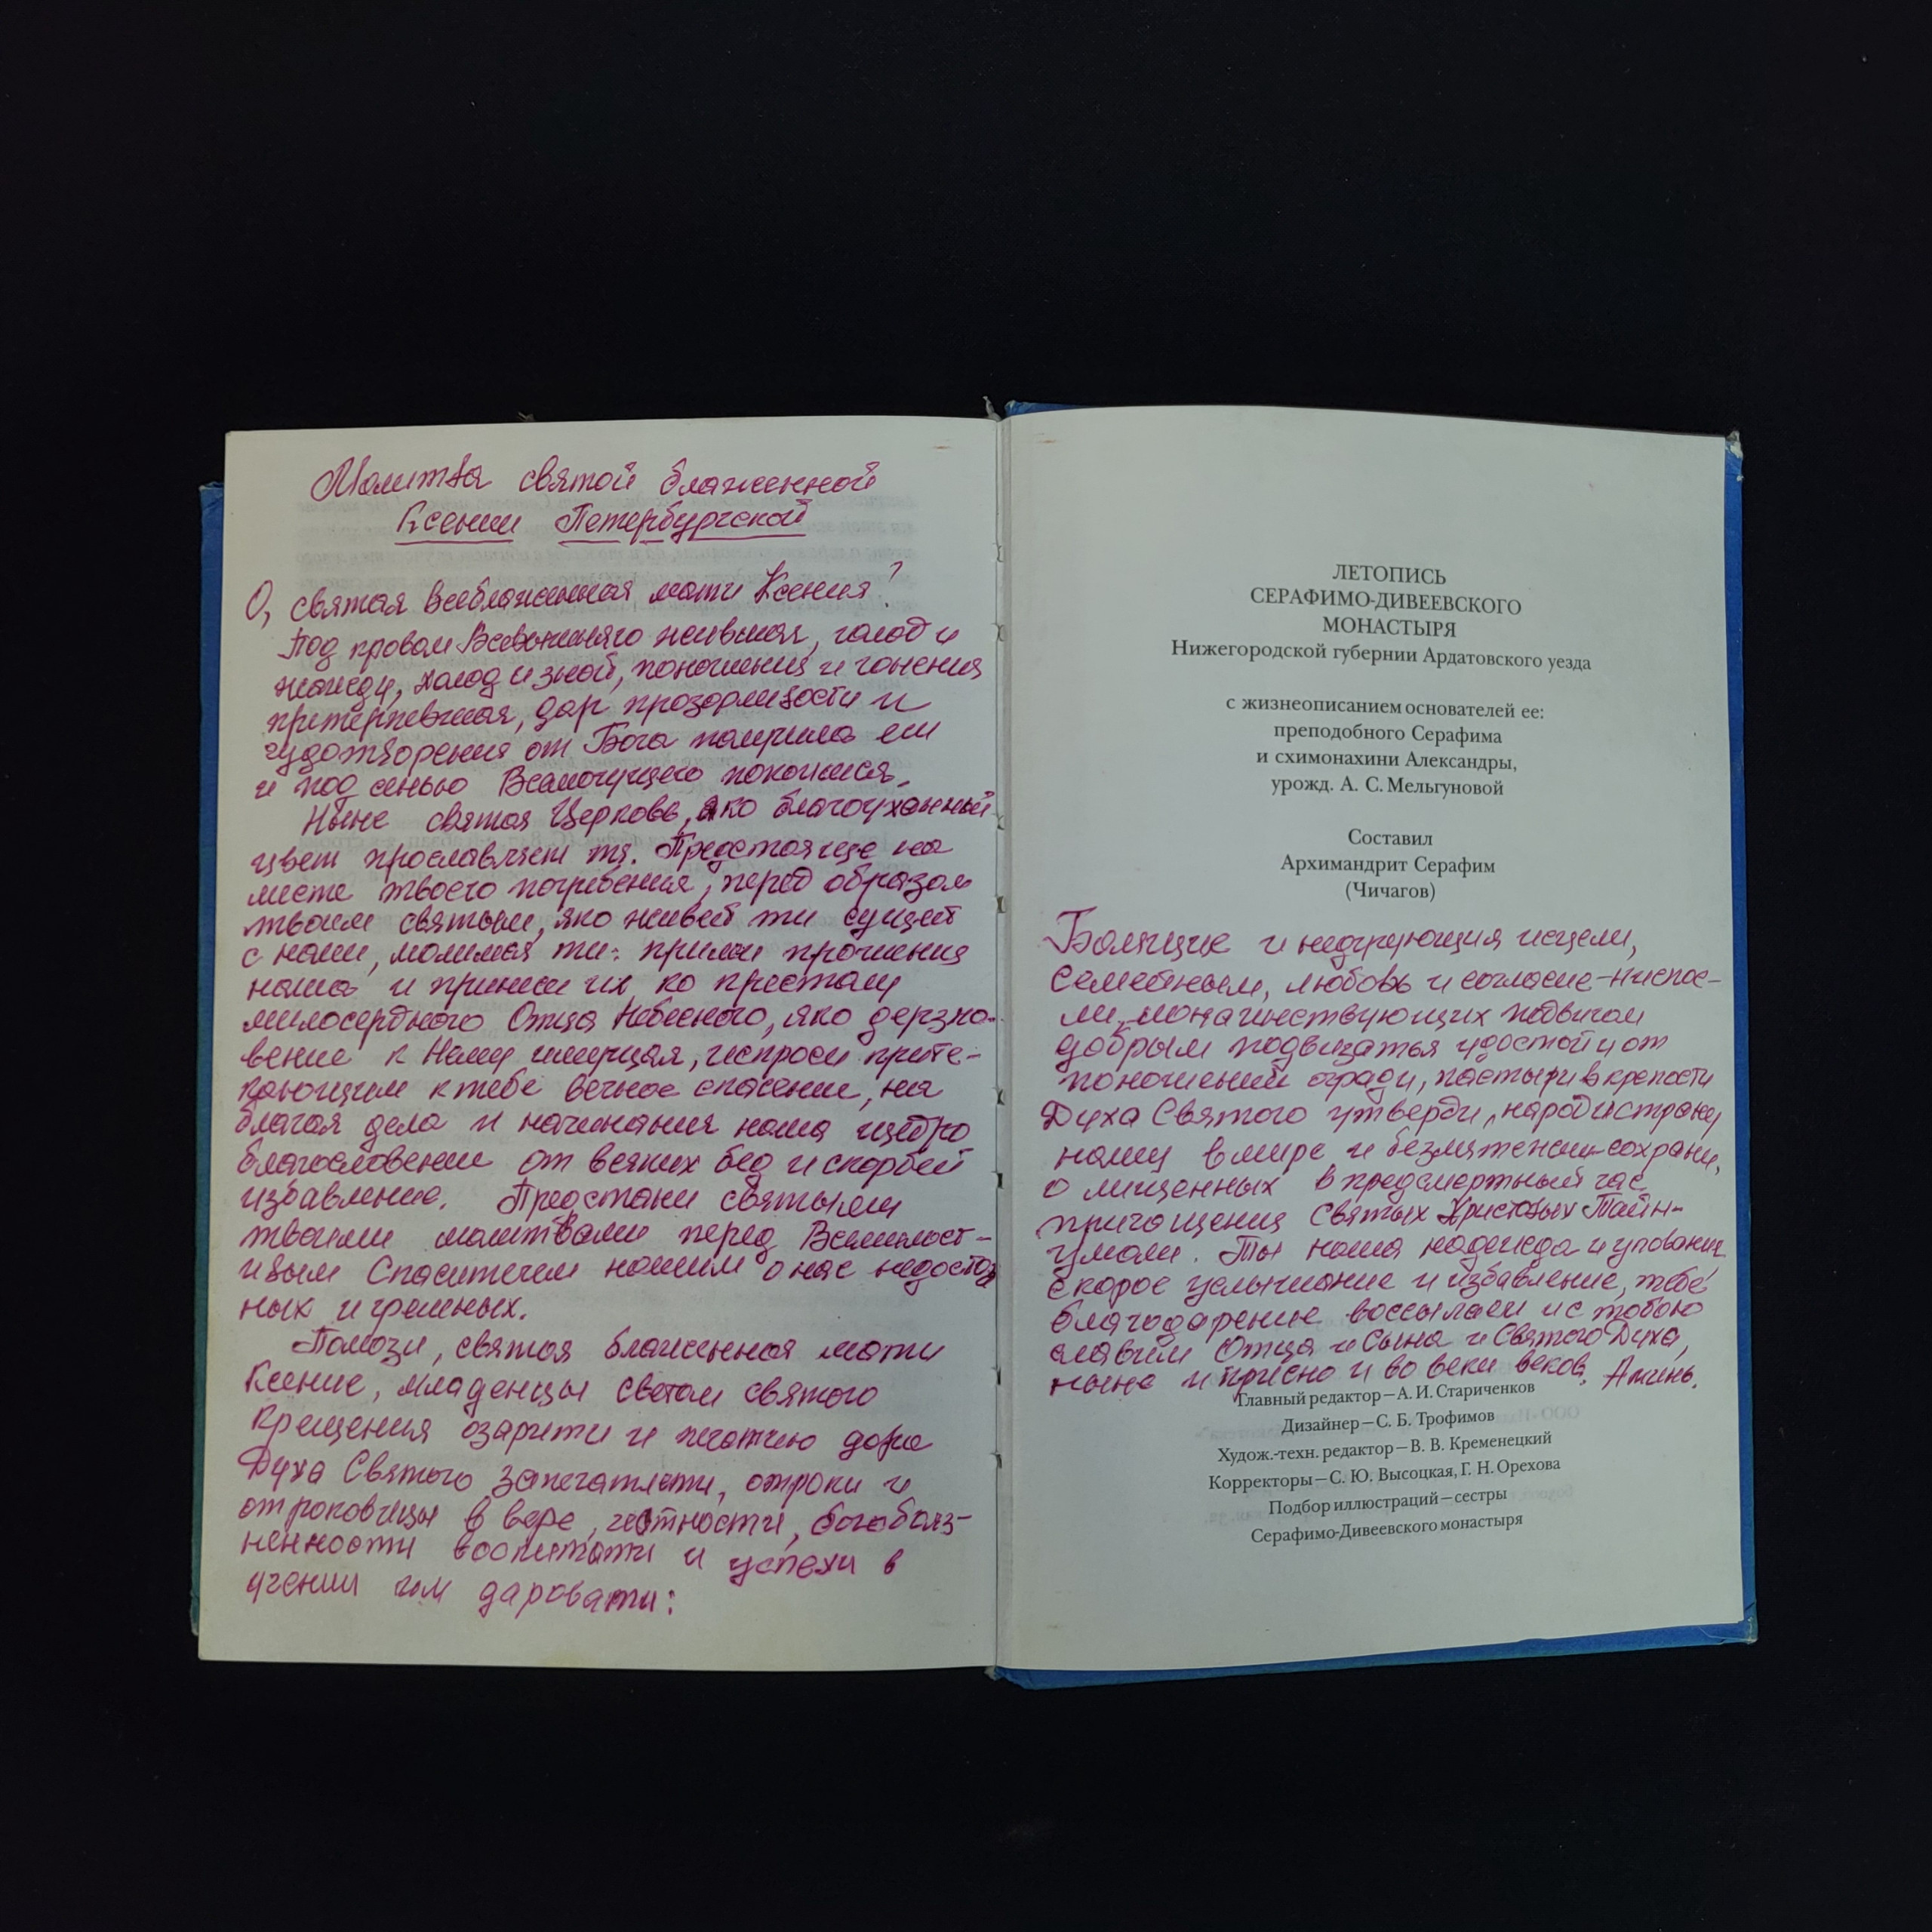 Молитва святой блаженной
Ксении Петербургской
О, святая всеблаженная мати Ксения!
Под кровом Всевышняго жившая, голод и
жажду, холод и зной, поношения и гонения
притерпевшая, дар прозорливости и
чудотворения от Бога получила еси
и под сенью Всемогущего покоишися.
Ныне святая Церковь, яко благоуханный
цвет прославляет тя. Предстояще на
месте твоего погребения, перед образом
твоим святым, яко живей ти сущей
с нами, молимся ти: прими прошения
наша и принеси их ко престолу
милосердного Отца Небесного, яко дерзно-
вение к Нему имущая, испроси прите-
кающим к тебе вечное спасение, на
благая дела и начинания наша щедро
благословение от всяких бед и скорбей
избавление. Предстани святыми
твоими молитвами перед Всемилост-
ивым Спасителем нашим о нас недостой
ных и грешных.
Помози, святая блаженная мати
Ксение, младенцы светом святого
крещения озарити и печатию дара
Духа Святого запечатлети, отроки и
отроковицы в вере, честности, богобояз-
ненности воспитати и успехи в
учении им даровати:
ЛЕТОПИСЬ
СЕРАФИМО-ДИВЕЕВСКОГО
МОНАСТЫРЯ
Нижегородской губернии Ардатовского уезда
с жизнеописанием основателей ее:
преподобного Серафима
и схимонахини Александры,
урожд. А. С. Мельгуновой
Составил
Архимандрит Серафим
(Чичагов)
Болящие и недугующия исцели,
семейным, любовь и согласие-ниспос-
ли, монашествующих подвигом
добрым подвизатья удостой и от
поношений огради, пастыри в крепости
Духа Святого утверди, народ и страну
нашу в мире и безмятежии-сохрани,
о лишенных в предсмертный час
причащения Святых Христовых Тайн-
умоли. Ты наша надежда и упование,
скорое услышание и избавление, тебе
благодарение воссылаем и с тобою
славим Отца и Сына и Святого Духа,
ныне и присно и во веки веков. Аминь.
Главный редактор — А. И. Стариченков
Дизайнер — С. Б. Трофимов
Худож.-техн. редактор — В. В. Кременецкий
Корректоры — С. Ю. Высоцкая, Г. Н. Орехова
Подбор иллюстраций — сестры
Серафимо-Дивеевского монастыря